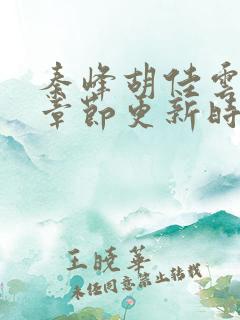 秦峰胡佳雲
章節更新時
王曉華
未经同意禁止转载